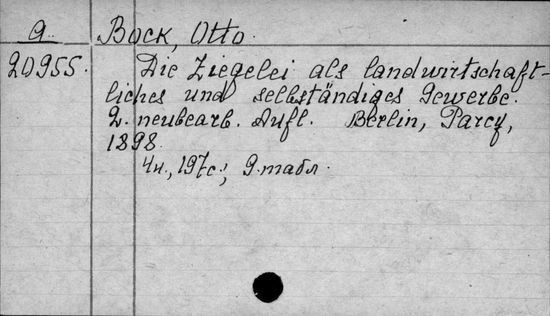 a Bock, Otto
20955. Die Ziegelei als landwirtschaft-
liches und selbständiges Gewerbe.
2. neubearb. Aufl. Berlin, Parey,
1898.
197с.; 9 табл.